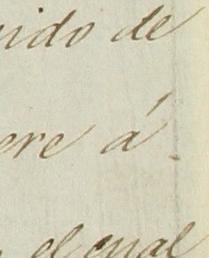 ido de
ere á
el cual